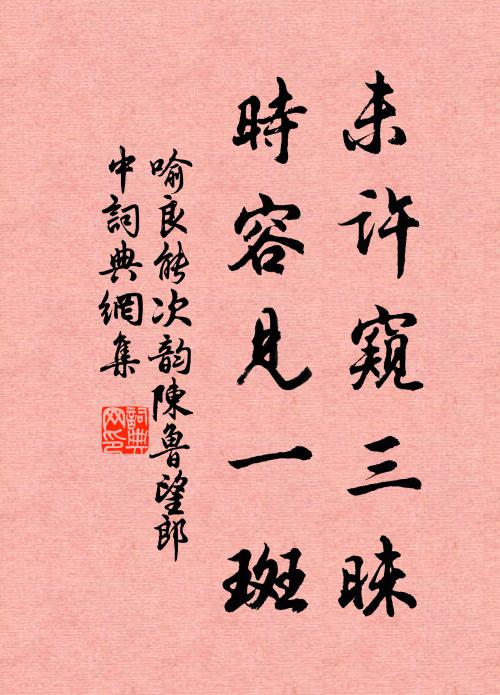 未許窺三昧
時容見一斑
喻良能次韵陳魯望郎
中詞典網集
詞典網印